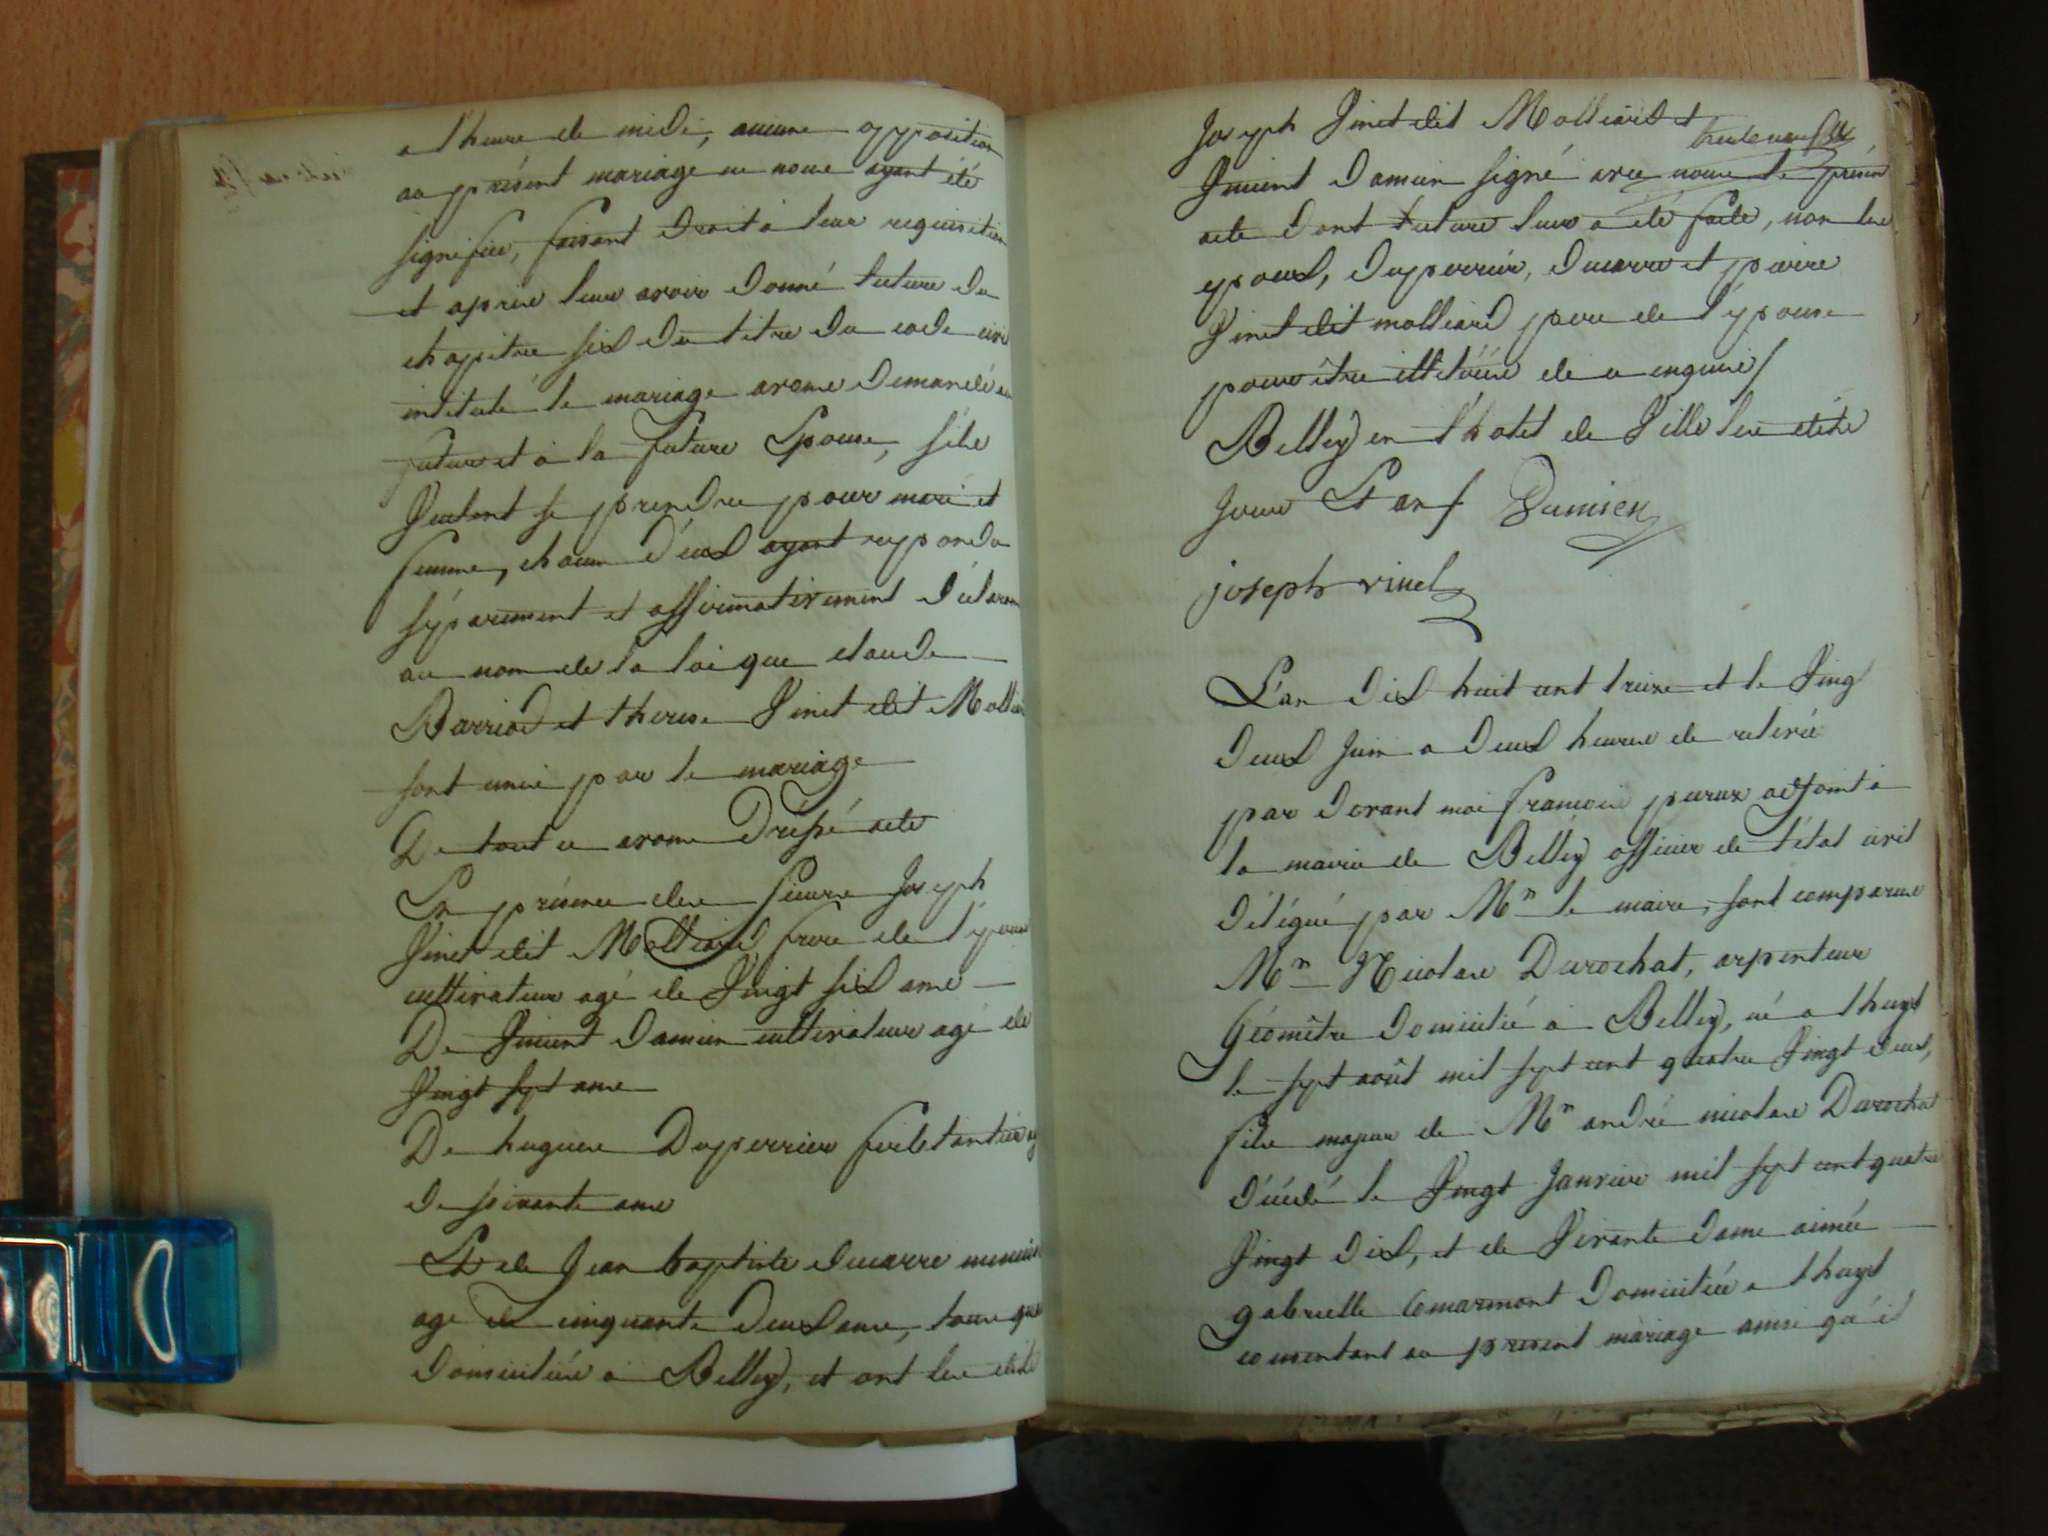 a l'heure de midi, aucune opposition
au présent mariage ne nous ayant été
signifiée, faisant droit à leur requisition
et après leur avoir donné lecture du
chapitre six du titre du code civil
intitulé le mariage avons demandé au
futur et à la future Epouse, s'ils
Veulent se prendre pour mari et
femme, chacun d'eux ayant repondu
séparement et affirmativement déclarons
au nom de la loi que claude
Barriod et therese Vinet dit Molliard
sont unis par le mariage
De tout ce avons Dréssé acte
En présence des sieurs Joseph
Vinet dit Molliard frere de l'épouse
cultivateur agé de Vingt six ans
De Vincent Damien cultivateur agé de
Vingt sept ans
De hugues Duperrier ferblantier agé
De soixante ans
Et de Jean baptiste Ducarre menuisier
agé de cinquante Deux ans, tous quatre
Domiciliés à Belley, et ont les dits
Joseph Vinet dit Molliard et
Vincent Damien signé avec nous le présent
acte dont lecture leur a été faite, non les
epoux, Duperrier, Ducarre et pierre
Vinet dit molliard pere de l'épouse
pour être illitérés de ce enquis/
Belley en l'hotel de Ville les dits
Jour Et an/ Damien
joseph vinet
L'an dix huit cent treize et le Vingt
Deux Juin a Deux heures de relevée
par devant moi francois adjoint à
la mairie de Belley officier de l'état civil
Délégué par Mr le maire, sont comparus
Mr Nicolas Durochat, arpenteur
Géomètre Domicilié à Belley, né a thuys
le sept août mil sept cent quatre Vingt deux,
fils majeur de Mr andré nicolas Durochat
Décédé le Vingt Janvier mil sept cent quatre
Vingt Dix, et de Vivante Dame aimée
gabrielle Comarmont Domiciliée a thuys
consentant au présent màriage ainsi qu'il